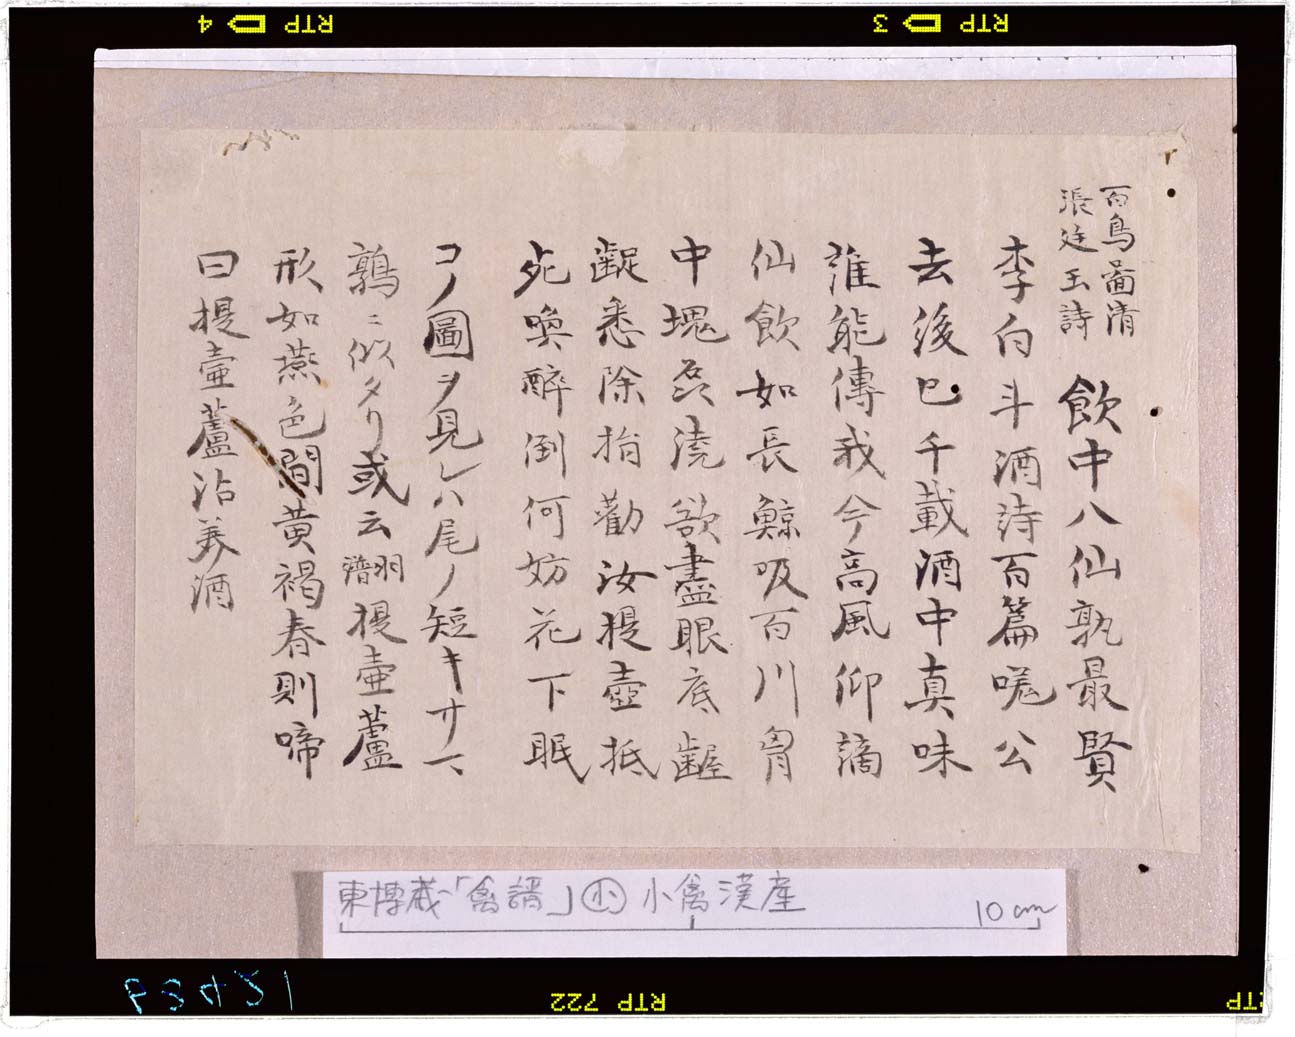 百鳥啚清
張廷玉詩
飲中八仙孰最賢
李白斗酒詩百篇嗟公
去後已千載酒中真味
誰能傳我今高風仰謫
仙飲如長鯨吸百川胷
中塊磊澆欲盡眼底齷
齪悉除捐勸汝提壺抵
死喚醉倒何妨花下眠
コノ圖ヲ見レハ尾ノ短キサマ
鶉ニ似タリ或云潛翮提壷蘆
形如燕色間黄褐春則啼
曰提壷蘆沽美酒
東博蔵「禽譜」㋭小禽漢産
10cm
RTP 3
RTP 4
RTP 722
RTP